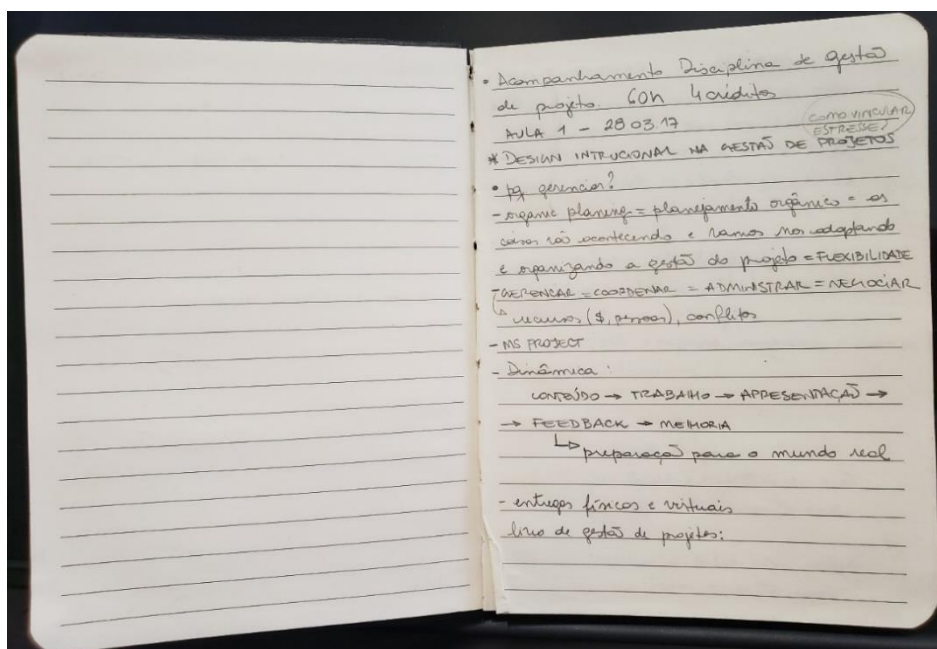 • Acompanhamento Disciplina de gestão
de projeto. 60h 4 créditos
AULA 1 - 28 03.17
COMO VINCULAR
ESTRESSE?
* DESIGN INTRUCIONAL NA GESTÃO DE PROJETOS
• pq gerenciar?
- organic planing = planejamento orgânico = as
coisas vão acontecendo e vamos nos adaptando
e organizando a gestão do projeto = FLEXIBILIDADE
- GERENCAR = COORDENAR = ADMINISTRAR = NEGOCIAR
↳ recursos ($, pessoas), conflitos
- MS PROJECT
- Dinâmica:
CONTEÚDO → TRABALHO → APRESENTAÇÃO →
→ FEEDBACK → MELHORIA
↳ preparação para o mundo real
- entregas físicas e virtuais
livro de gestão de projetos: